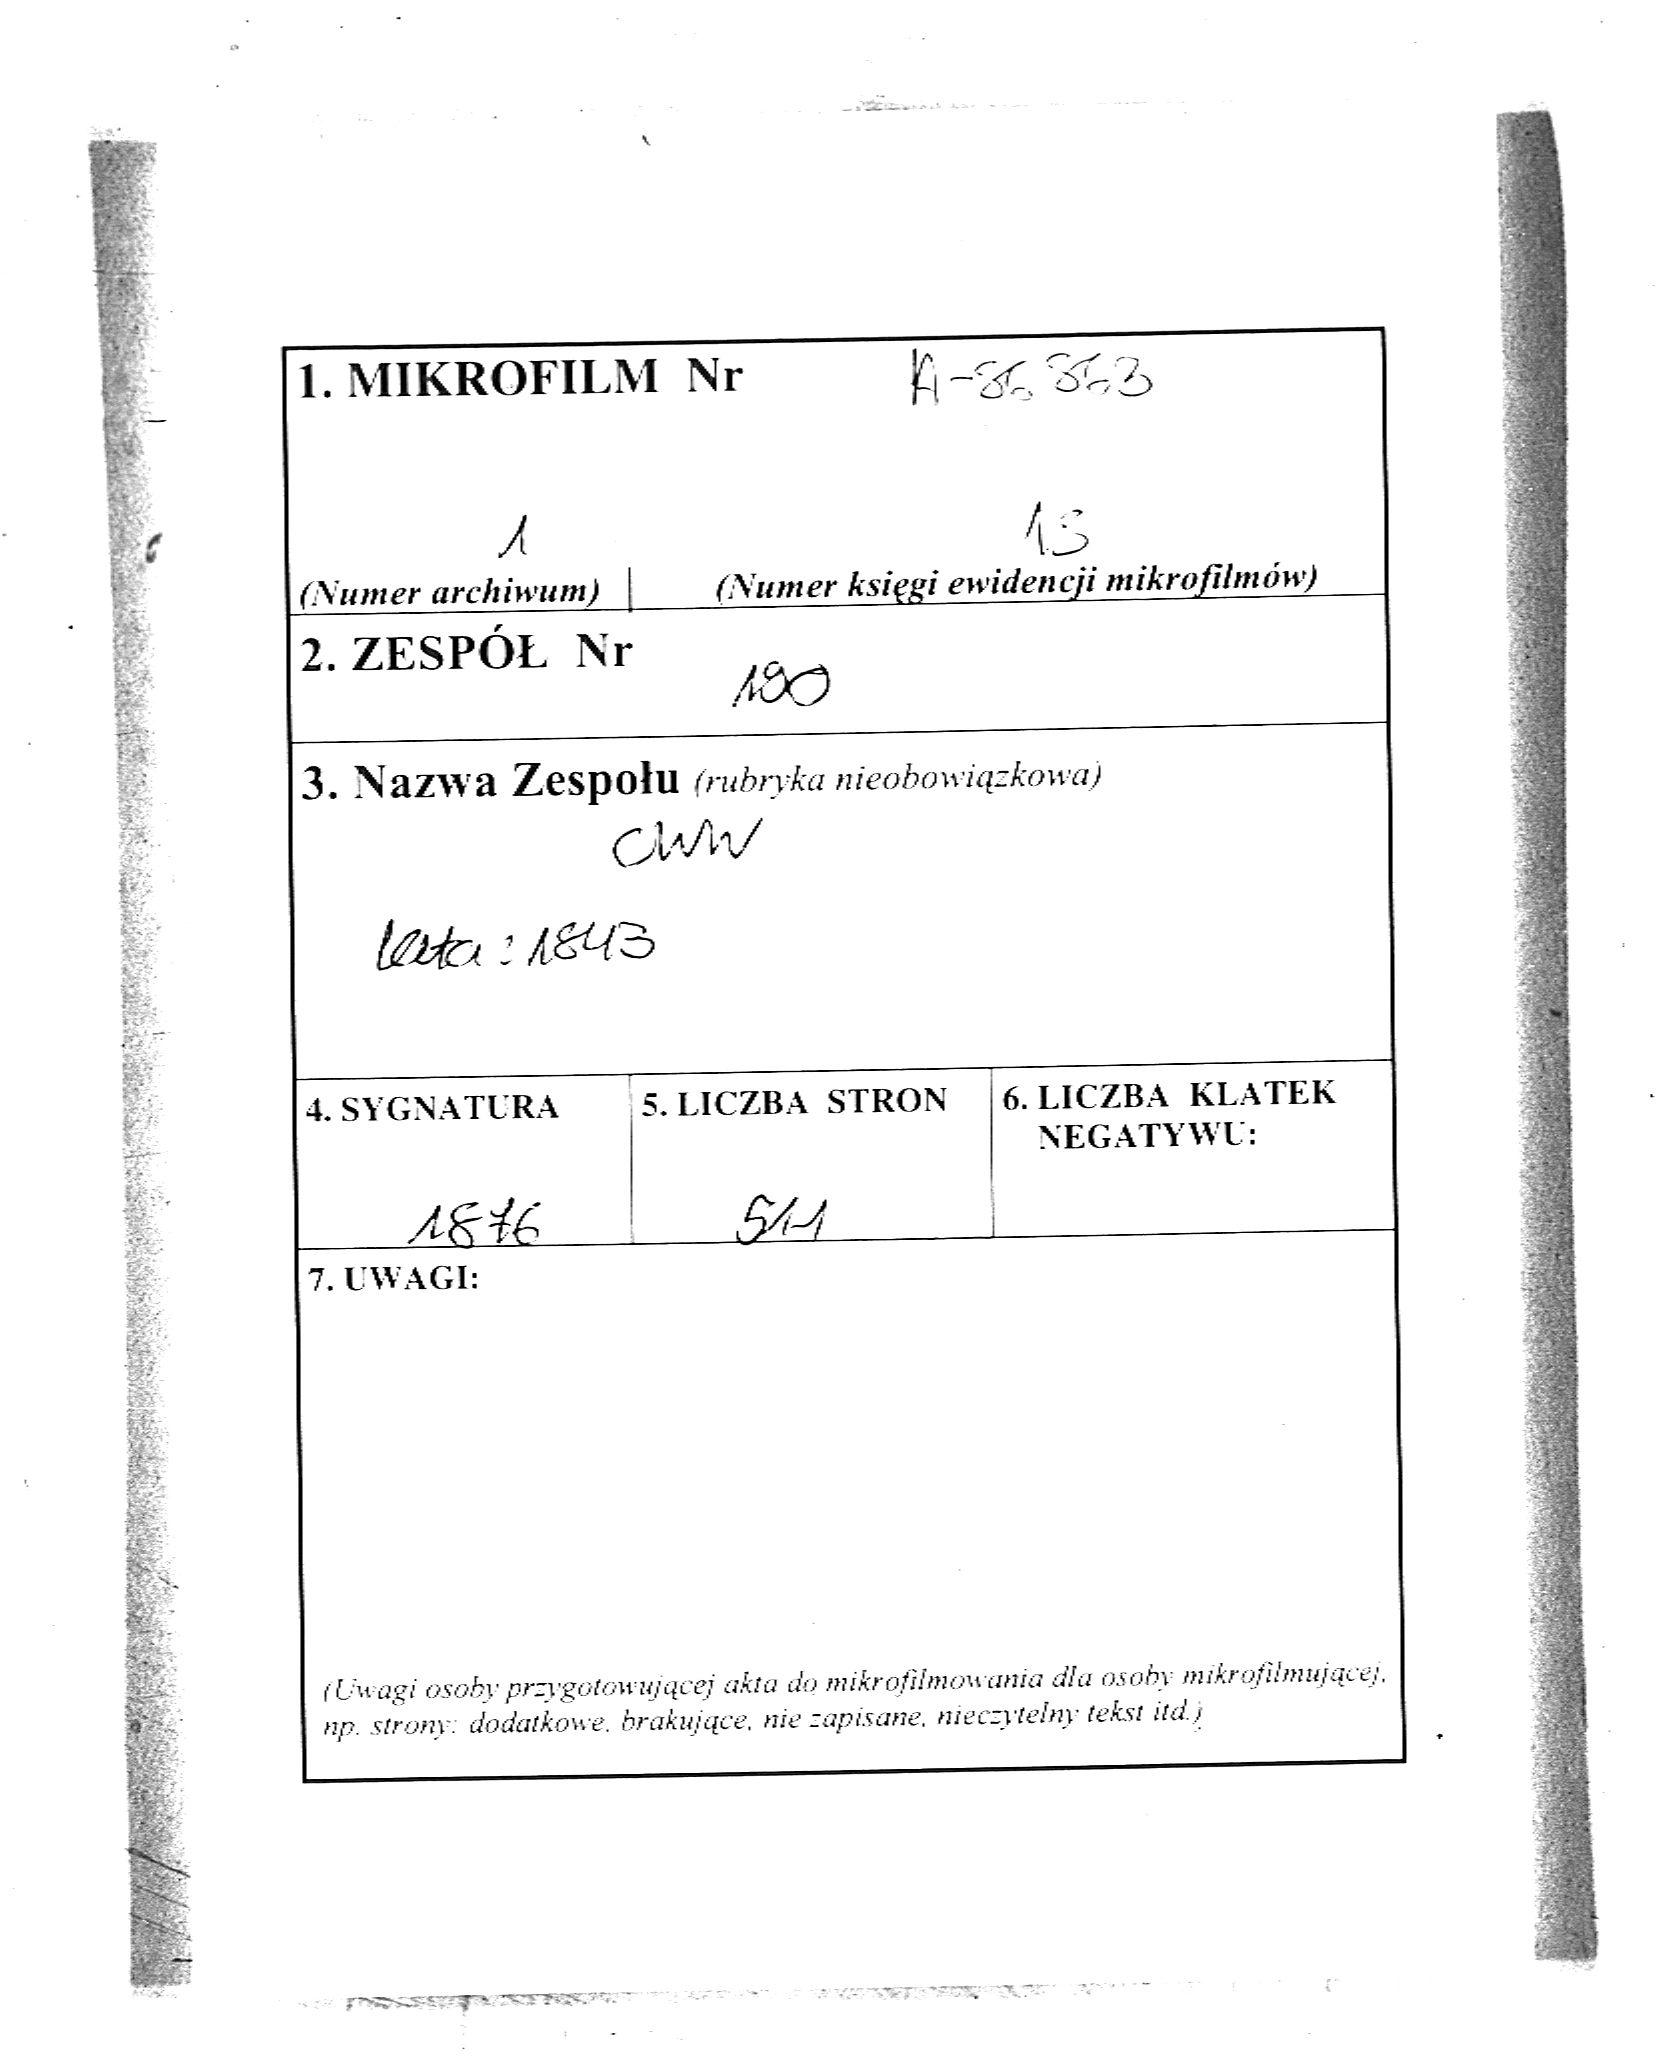 1. MIKROFILM Nr
1 13
(Numer archiwum) | (Numer księgi ewidencji mikrofilmów)
2. ZESPÓŁ Nr
190
3. Nazwa Zespołu (rubryka nieobowiązkowa)
CWW
lata : 1843
4. SYGNATURA 5. LICZBA STRON 6. LICZBA KLATEK
NEGATYWU:
1876 511
7. UWAGI:
(Uwagi osoby przygotowującej akta do mikrofilmowania dla osoby mikrofilmującej,
np. strony: dodatkowe, brakujące, nie zapisane, nieczytelny tekst itd.)